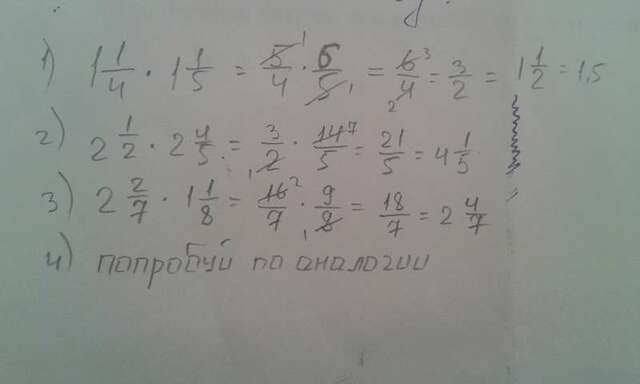 1) 1 1/4 · 1 1/5 = 5/4 · 6/5 = 6/4 = 3/2 = 1 1/2 = 1,5
2) 2 1/2 · 2 4/5 = 3/2 · 14/5 = 21/5 = 4 1/5
3) 2 2/7 · 1 1/8 = 16/7 · 9/8 = 18/7 = 2 4/7
4) попробуй по аналогии